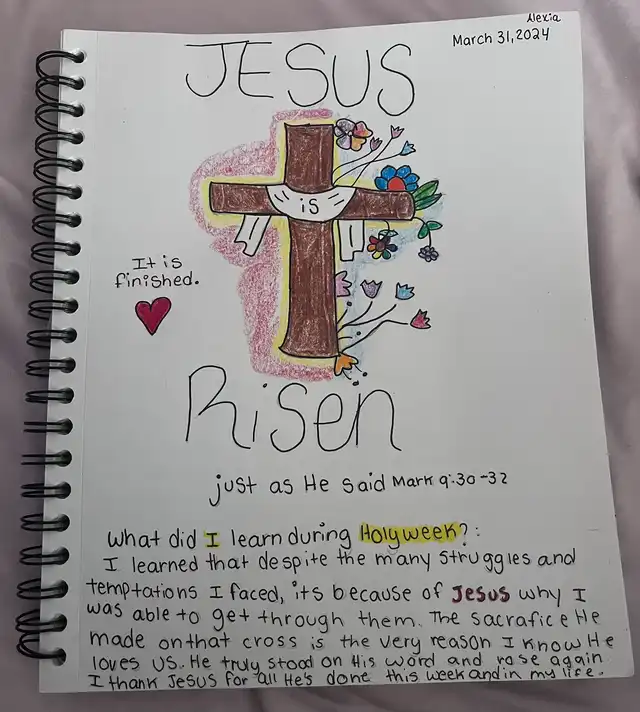 Alexia
March 31, 2024
JESUS
is
It is
finished.
Risen
just as He said Mark 9:30-32
What did I learn during Holy week?:
I learned that despite the many struggles and
temptations I faced, its because of Jesus why I
was able to get through them. The sacrafice He
made on that cross is the very reason I know He
loves us. He truly stood on His word and rose again
I thank Jesus for all He's done this week and in my life.